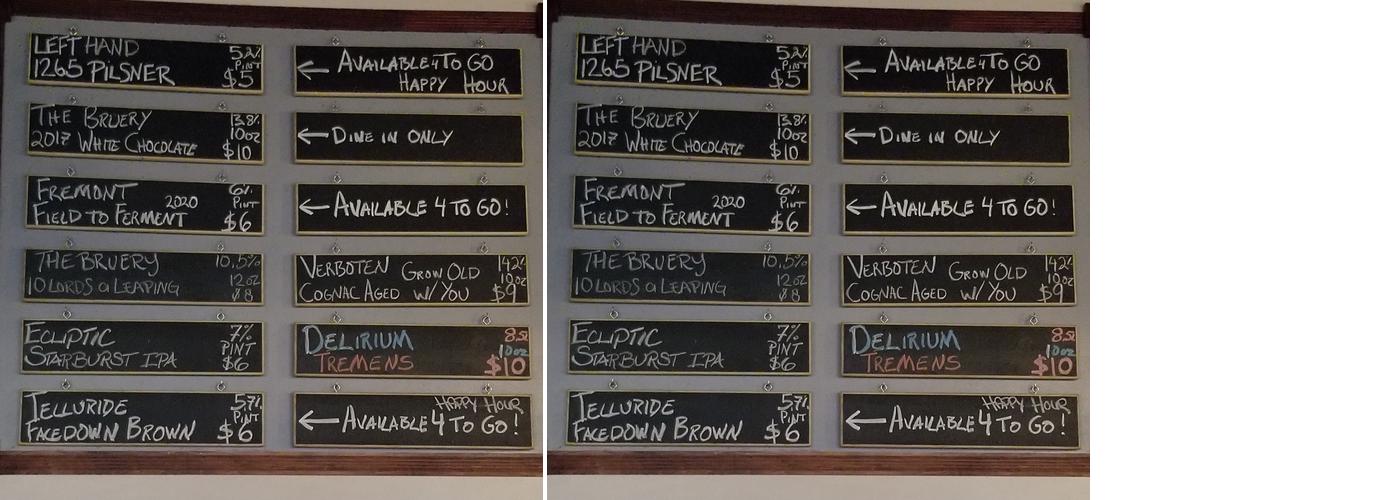 LEFT HAND 5.2%
1265 PILSNER PINT $5
← AVAILABLE 4 TO GO
HAPPY HOUR
THE BRUERY 13.8%
10oz
2017 WHITE CHOCOLATE $10
← DINE IN ONLY
FREMONT 2020 6%
PINT
FIELD TO FERMENT $6
← AVAILABLE 4 TO GO!
THE BRUERY 10.5%
12oz
10 LORDS a LEAPING $8
VERBOTEN GROW OLD 14.2%
10oz
COGNAC AGED W/ YOU $9
ECLIPTIC 7%
PINT
STARBURST IPA $6
DELIRIUM 8.5%
10oz
TREMENS $10
TELLURIDE 5.7%
PINT
FACEDOWN BROWN $6
HAPPY HOUR
← AVAILABLE 4 TO GO!
LEFT HAND 5.2%
1265 PILSNER PINT $5
← AVAILABLE 4 TO GO
HAPPY HOUR
THE BRUERY 13.8%
10oz
2017 WHITE CHOCOLATE $10
← DINE IN ONLY
FREMONT 2020 6%
PINT
FIELD TO FERMENT $6
← AVAILABLE 4 TO GO!
THE BRUERY 10.5%
12oz
10 LORDS a LEAPING $8
VERBOTEN GROW OLD 14.2%
10oz
COGNAC AGED W/ YOU $9
ECLIPTIC 7%
PINT
STARBURST IPA $6
DELIRIUM 8.5%
10oz
TREMENS $10
TELLURIDE 5.7%
PINT
FACEDOWN BROWN $6
HAPPY HOUR
← AVAILABLE 4 TO GO!